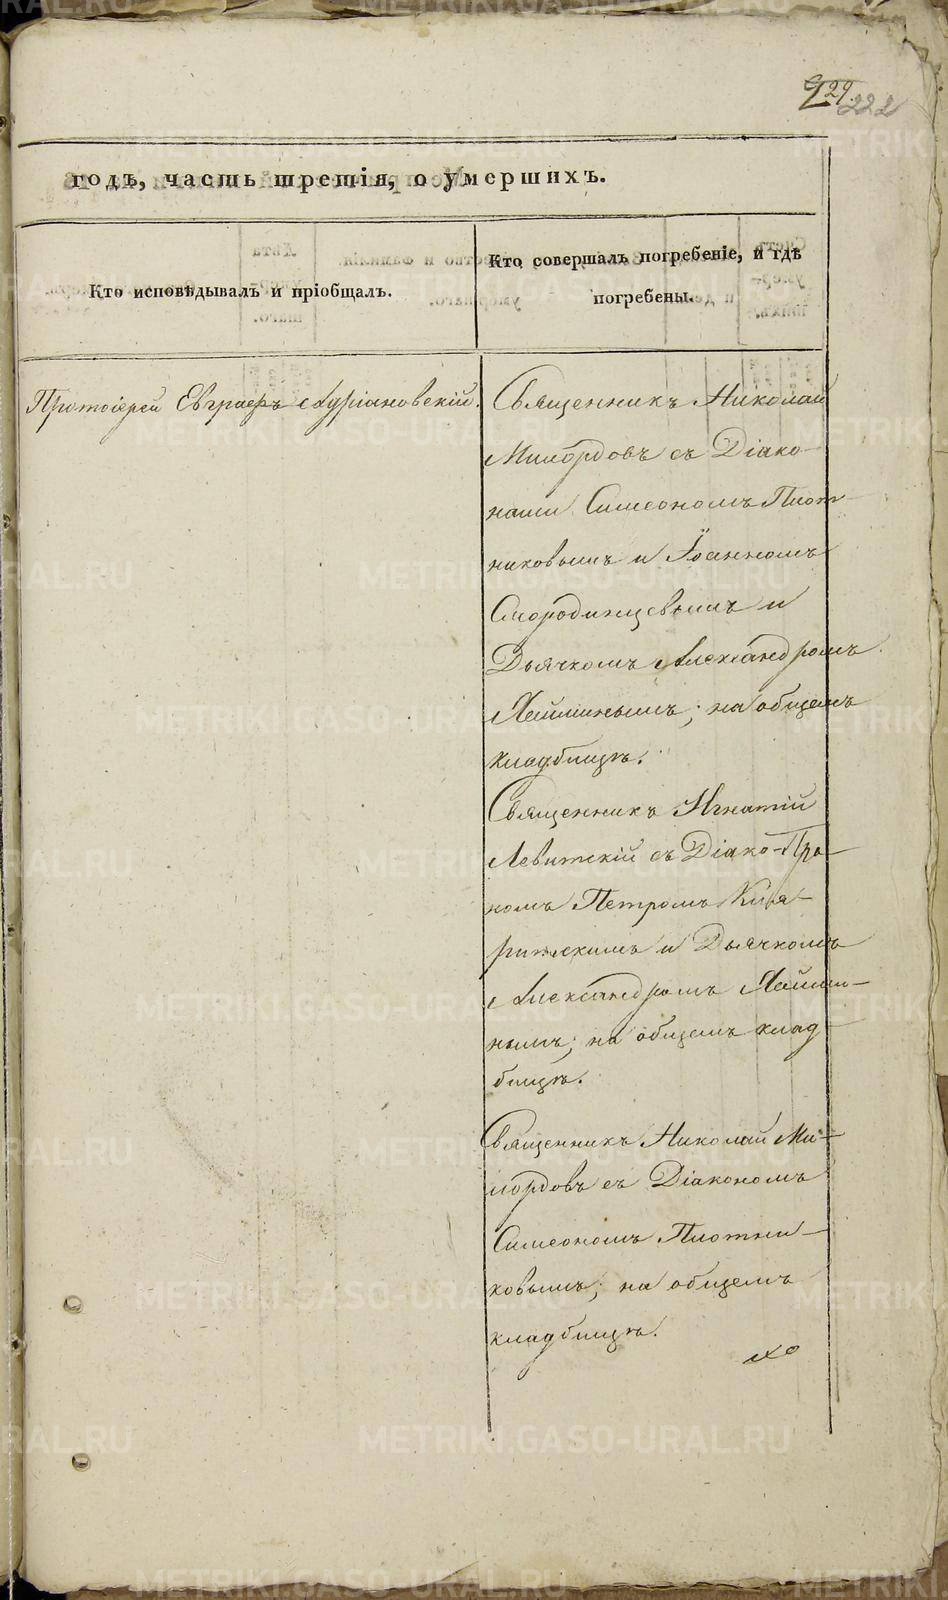 929.
222
годъ, часть третія, о умершихъ.
Кто исповѣдывалъ и пріобщалъ.
Кто совершалъ погребеніе, и гдѣ
погребены.
Протоіерей Евграфъ Адріановскій.
Священникъ Николай
Милордовъ съ Діако-
нами Симеономъ Плот-
никовымъ и Іоанномъ
Смородинцевымъ и
Дьячкомъ Александромъ
Хайминымъ; на общемъ
кладбищѣ.
Священникъ Игнатій
Левитскій съ Діако-
номъ Петромъ
и Дьячкомъ
Александромъ Хайми-
нымъ; на общемъ клад-
бищѣ.
Священникъ Николай Ми-
лордовъ съ Діакономъ
Симеономъ Плотни-
ковымъ; на общемъ
кладбищѣ.
METRIKI.GASO-URAL.RU